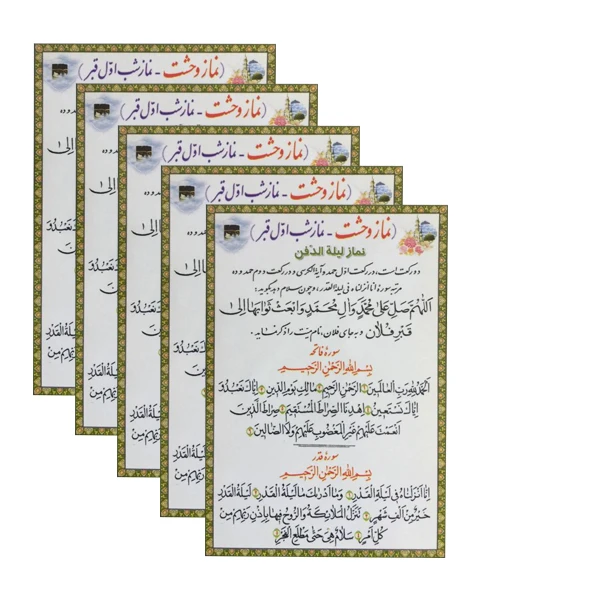 (نماز وحشت - نماز شب اوّل قبر)
(نماز وحشت - نماز شب اوّل قبر)
(نماز وحشت - نماز شب اوّل قبر)
(نماز وحشت - نماز شب اوّل قبر)
(نماز وحشت - نماز شب اوّل قبر)
نماز لیلة الدّفن
دو رکعت است، در رکعت اول حمد و آیة الکرسی و در رکعت دوم حمد و ده
مرتبه سورهٔ انا انزلناه فی لیلة القدر، و چون سلام دهد بگوید:
اَللّهُمَّ صَلِّ عَلی مُحَمَّدٍ وَآلِ مُحَمَّدٍ وَابْعَثْ ثَوابَها اِلی
قَبْرِ فُلان و به جای فلان، نام میّت را ذکر نماید.
سورهٔ فاتحه
بِسْمِ اللهِ الرَّحْمنِ الرَّحیمِ
اَلْحَمْدُ لِلّهِ رَبِّ الْعالَمینَ ۝ اَلرَّحْمنِ الرَّحیمِ ۝ مالِکِ یَوْمِ الدّینِ ۝ اِیّاکَ نَعْبُدُ وَ
اِیّاکَ نَسْتَعینُ ۝ اِهْدِنَا الصِّراطَ الْمُسْتَقیمَ ۝ صِراطَ الَّذینَ
اَنْعَمْتَ عَلَیْهِمْ غَیْرِ الْمَغْضُوبِ عَلَیْهِمْ وَلَا الضّالّینَ ۝
سورهٔ قدر
بِسْمِ اللهِ الرَّحْمنِ الرَّحیمِ
اِنّا اَنْزَلْناهُ فی لَیْلَةِ الْقَدْرِ ۝ وَما اَدْریکَ ما لَیْلَةُ الْقَدْرِ ۝ لَیْلَةُ الْقَدْرِ
خَیْرٌ مِنْ اَلْفِ شَهْرٍ ۝ تَنَزَّلُ الْمَلائِکَةُ وَالرُّوحُ فیها بِاِذْنِ رَبِّهِمْ مِنْ
کُلِّ اَمْرٍ ۝ سَلامٌ هِیَ حَتّی مَطْلَعِ الْفَجْرِ ۝